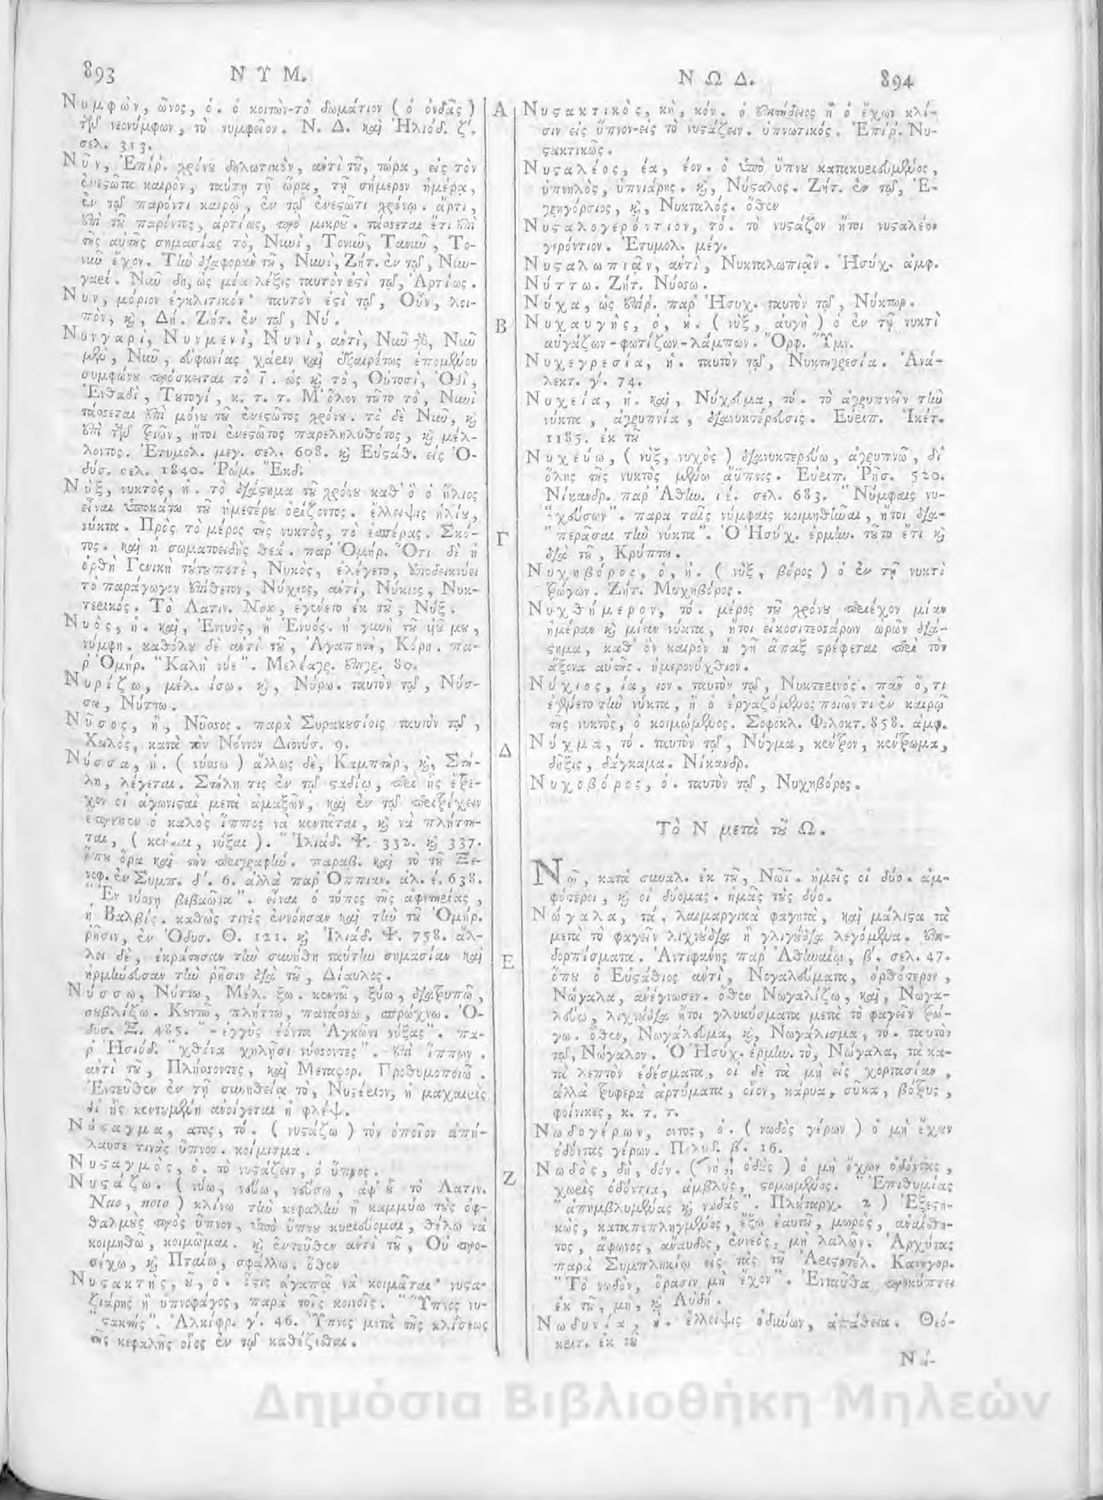 893 Ν Υ Μ.
Νυμφὼν, ῶνος, ὁ. ὁ κοιτὼν-τὸ δωμάτιον ( ὁ ὀνδᾶς )
τῶν νεονύμφων, τὸ νυμφεῖον. Ν. Δ. καὶ Ἡλιόδ. ζ΄.
σελ. 313.
Νῦν, Ἐπίρ. χρόνου δηλωτικὸν, ἀντὶ τοῦ, τώρα, εἰς τὸν
ἐνεστῶτα καιρὸν, ταύτῃ τῇ ὥρᾳ, τῇ σήμερον ἡμέρᾳ,
ἐν τῷ παρόντι καιρῷ, ἐν τῷ ἐνεστῶτι χρόνῳ. ἄρτι,
ἐπὶ τοῦ παρόντος, ἀρτίως, πρὸ μικροῦ. τάσσεται ἔτι ἐπὶ
τῆς αὐτῆς σημασίας τὸ, Νυνὶ,
νῦν ἔχον. Τὴν διαφορὰν τοῦ, Νυνὶ, Ζήτ. ἐν τῷ, Νυν-
γαρί. Νῦν δὴ, ὡς μία λέξις ταυτὸν ἐστὶ τῷ, Ἀρτίως.
Νυν, μόριον ἐγκλιτικὸν· ταυτὸν ἐστὶ τῷ, Οὖν, λοι-
πὸν, καὶ, Δή. Ζήτ. ἐν τῷ, Νύ.
Νυνγαρὶ, Νυνμενὶ, Νυνὶ, ἀντὶ, Νῦν γὰρ, Νῦν
μὲν, Νῦν, εὐφωνίας χάριν καὶ ἐξαιρέτως ἑπομένου
συμφώνου πρόσκειται τὸ ῑ. ὡς καὶ τὸ, Οὑτοσὶ, Ὁδὶ,
Ἐνθαδὶ, Τουτογὶ, κ. τ. τ. Μ᾽ ὅλον τοῦτο τὸ, Νυνὶ
τάσσεται ἐπὶ μόνου τοῦ ἐνεστῶτος χρόνου. τὸ δὲ Νῦν, καὶ
ἐπὶ τῶν τριῶν, ἤτοι ἐνεστῶτος παρεληλυθότος, καὶ μέλ-
λοντος. Ἐτυμολ. μεγ. σελ. 608. καὶ Εὐστάθ. εἰς Ὀ-
δύσ. σελ. 1840. Ῥώμ. Ἔκδ.
Νὺξ, νυκτὸς, ἡ. τὸ διάστημα τοῦ χρόνου καθ᾽ ὃ ὁ ἥλιος
εἶναι ὑποκάτω τοῦ ἡμετέρου ὁρίζοντος. ἔλλειψις ἡλίου,
νύκτα. Πρὸς τὸ μέρος τῆς νυκτὸς, τὸ ἑσπέρας. Σκό-
τος. καὶ ἡ σωματοειδὴς θεά. παρ᾽ Ὁμήρ. Ὅτι δὲ ἡ
ὀρθὴ Γενικὴ τούτου ποτὲ, Νυκὸς, ἐλέγετο, ὑποδεικνύει
τὸ παράγωγον ἐπίθετον, Νύχιος, ἀντὶ, Νύκιος, Νυκ-
τερινός. Τὸ Λατιν. Nox, ἐγένετο ἐκ τοῦ, Νύξ.
Νυὸς, ἡ. καὶ, Ἐννυὸς, ἢ Ἐνυός. ἡ γυνὴ τοῦ υἱοῦ μου,
νύμφη. καθόλου δὲ ἀντὶ τοῦ, Ἀγαπητὴ, Κόρη. πα-
ρ᾽ Ὁμήρ. "Καλὴ νύε". Μελέαγρ. ἐπιγρ. 80.
Νυρίζω, μέλ. ίσω. καὶ, Νύρω. ταυτὸν τῷ, Νύσ-
σω, Νύττω.
Νῦσος, ἢ, Νῦσσος. παρὰ Συρακουσίοις ταυτὸν τῷ,
Χωλὸς, κατὰ τὸν Νόννον Διονύσ. 9.
Νύσσα, ἡ. ( νύσσω ) ἄλλως δὲ, Καμπτὴρ, καὶ, Στή-
λη, λέγεται. Στήλη τις ἐν τῷ σταδίῳ, περὶ ἧς ἔτρε-
χον οἱ ἀγωνισταὶ μετὰ ἁμαξῶν, καὶ ἐν τῷ περιτρέχειν
ὁ καλὸς ἵππος νὰ κεντᾶται, καὶ νὰ πλήττη-
ται, ( κεντᾶται, νύξαι ). "Ἰλιάδ. Ψ. 332. καὶ 337.
ὅπου ὅρα καὶ τὴν περιγραφήν. παραβ. καὶ τὸ τοῦ Ξε-
νοφ. ἐν Συμπ. δ΄. 6. ἀλλὰ παρ᾽ Ὀππιαν. ἁλ. έ. 638.
"Ἐν νύσσῃ βεβαῶτα". εἶναι ὁ τόπος τῆς ἀφετηρίας,
ἡ Βαλβίς. καθὼς τινὲς ἐννόησαν καὶ τὴν τοῦ Ὁμήρ.
ῥῆσιν, ἐν Ὀδυσ. Θ. 121. καὶ Ἰλιάδ. Ψ. 758. ἄλ-
λοι δὲ, ἐκράτησαν τὴν συνήθη ταύτην σημασίαν καὶ
ἡρμήνευσαν τὴν ῥῆσιν διὰ τοῦ, Δίαυλος.
Νύσσω, Νύττω, Μέλ. ξω. κεντῶ, ξύω, διατρυπῶ,
σουβλίζω. Κεντῶ, πλήττω, πατάσσω, σπρώχνω. Ὀ-
δυσ. Ξ. 485. "-ἐγγὺς ἐόντα Ἀγκῶνι νύξας". πα-
ρ᾽ Ἡσιόδ. "χθόνα χηλῇσι νύσσοντες". ἐπὶ ἵππων.
ἀντὶ τοῦ, Πλήσσοντες, καὶ Μεταφορ. Προθυμοποιῶ.
Ἐντεῦθεν ἐν τῇ συνηθείᾳ τὸ, Νυστέριον, ἡ μάχαιρις
δι᾽ ἧς κεντωμένη ἀνοίγεται ἡ φλέψ.
Νύσταγμα, ατος, τό. ( νυστάζω ) τὸν ὁποῖον ἀπή-
λαυσέ τινὰς ὕπνον. κοίμισμα.
Νυσταγμὸς, ὁ. τὸ νυστάζειν, ὁ ὕπνος.
Νυστάζω. ( νύω, νεύω, νεύσω, ἀφ᾽ οὗ τὸ Λατιν.
Nuo, noto ) κλίνω τὴν κεφαλὴν ἢ καμμύω τοὺς ὀφ-
θαλμοὺς πρὸς ὕπνον, ὑπὸ ὕπνου κυριεύομαι, θέλω νὰ
κοιμηθῶ, κοιμῶμαι. καὶ ἐντεῦθεν ἀντὶ τοῦ, Οὐ προ-
σέχω, καὶ Πταίω, σφάλλω. ὅθεν
Νυστακτὴς, οῦ, ὁ. ὅστις ἀγαπᾷ νὰ κοιμᾶται· νυστα-
ζιάρης ἢ ὑπνοφάγος, παρὰ τοῖς κοινοῖς. "Ὕπνος νυ-
"στακτής". Ἀλκίφρ. γ΄. 46. Ὕπνος μετὰ τῆς κλίσεως
τῆς κεφαλῆς οἷος ἐν τῷ καθέζεσθαι.
Α
Β
Γ
Δ
Ε
Ζ
Ν Ω Δ. 894
Νυστακτικὸς, κὴ, κόν. ὁ ἐπιτήδειος ἢ ὁ ἔχων κλί-
σιν εἰς ὕπνον-εἰς τὸ νυστάζειν. ὑπνωτικός. Ἐπίρ. Νυ-
στακτικῶς.
Νυσταλέος, έα, έον. ὁ ὑπὸ ὕπνου κατακυριευόμενος,
ὑπνηλὸς, ὑπνιάρης. καὶ, Νύσταλος. Ζήτ. ἐν τῷ, Ἐ-
γρηγόρσιος, καὶ, Νυκταλός. ὅθεν
Νυσταλογερόντιον, τό. τὸ νυστάζον ἤτοι νυσταλέον
γερόντιον. Ἐτυμολ. μέγ.
Νυσταλωπιᾷν, ἀντὶ, Νυκταλωπιᾷν. Ἡσύχ. ἀμφ.
Νύττω. Ζήτ. Νύσσω.
Νύχα, ὡς ἐπίρ. παρ᾽ Ἡσυχ. ταυτὸν τῷ, Νύκτωρ.
Νυχαυγὴς, ὁ, ἡ. ( νὺξ, αὐγὴ ) ὁ ἐν τῇ νυκτὶ
αὐγάζων-φωτίζων-λάμπων. Ὀρφ. Ὕμν.
Νυχεγρεσία, ἡ. ταυτὸν τῷ, Νυκτηγρεσία. Ἀνά-
λεκτ. γ΄. 74.
Νυχεία, ἡ. καὶ, Νύχευμα, τό. τὸ ἀγρυπνεῖν τὴν
νύκτα, ἀγρυπνία, διανυκτέρευσις. Εὐριπ. Ἱκέτ.
1185. ἐκ τοῦ
Νυχεύω, ( νὺξ, νυχὸς ) διανυκτερεύω, ἀγρυπνῶ, δι᾽
ὅλης τῆς νυκτὸς μένω ἄϋπνος. Εὐριπ. Ῥῆσ. 520.
Νίκανδρ. παρ᾽ Ἀθήν. ιέ. σελ. 683. "Νύμφαις νυ-
"χεύσων". παρὰ ταῖς νύμφαις κοιμηθῆναι, ἤτοι δια-
"περᾶσαι τὴν νύκτα". Ὁ Ἡσύχ. ἑρμην. τοῦτο ἔτι καὶ
διὰ τοῦ, Κρύπτω.
Νυχηβόρος, ὁ, ἡ. ( νὺξ, βόρος ) ὁ ἐν τῇ νυκτὶ
τρώγων. Ζήτ. Μυχηβόρος.
Νυχθήμερον, τό. μέρος τοῦ χρόνου περιέχον μίαν
ἡμέραν καὶ μίαν νύκτα, ἤτοι εἰκοσιτεσσάρων ὡρῶν διά-
στημα, καθ᾽ ὃν καιρὸν ἡ γῆ ἅπαξ στρέφεται περὶ τὸν
ἄξονα αὐτῆς. ἡμερονύχθιον.
Νύχιος, ία, ιον. ταυτὸν τῷ, Νυκτερινός. πᾶν ὅ,τι
ἐγένετο τὴν νύκτα, ἢ ὁ ἐργαζόμενος ποιῶν τι ἐν καιρῷ
τῆς νυκτὸς, ὁ κοιμώμενος. Σοφοκλ. Φιλοκτ. 858. ἀμφ.
Νύχμα, τό. ταυτὸν τῷ, Νύγμα, κέντρον, κέντρωμα,
δῆξις, δάγκαμα. Νίκανδρ.
Νυχοβόρος, ὁ. ταυτὸν τῷ, Νυχηβόρος.
Τὸ Ν μετὰ τοῦ Ω.
Νῶ, κατὰ συναλ. ἐκ τοῦ, Νῶϊ. ἡμεῖς οἱ δύο. ἀμ-
φότεροι, καὶ οἱ δύομας. ἡμᾶς τοὺς δύο.
Νώγαλα, τά. λαιμαργικὰ φαγητὰ, καὶ μάλιστα τὰ
μετὰ τὸ φαγεῖν λιχνεύδια ἢ γλιγούδια λεγόμενα. ἐπι-
δορπίσματα. Ἀντιφάνης παρ᾽ Ἀθηναίῳ, β΄. σελ. 47.
ὅπου ὁ Εὐστάθιος ἀντὶ, Νογαλεύματα, ὀρθότερον,
Νώγαλα, ἀνέγνωσεν. ὅθεν Νωγαλίζω, καὶ, Νωγα-
λεύω, λιχνεύδια ἤτοι γλυκύσματα μετὰ τὸ φαγεῖν τρώ-
γω. ὅθεν, Νωγάλευμα, καὶ, Νωγάλισμα, τό. ταυτὸν
τῷ, Νώγαλον. Ὁ Ἡσύχ. ἑρμην. τὸ, Νώγαλα, τὰ κα-
τὰ λεπτὸν ἐδέσματα, οἱ δὲ τὰ μὴ εἰς χορτασίαν,
ἀλλὰ τρυφερὰ ἀρτύματα, οἷον, κάρυα, σῦκα, βότρυς,
φοίνικες, κ. τ. τ.
Νωδογέρων, οντος, ὁ. ( νωδὸς γέρων ) ὁ μὴ ἔχων
ὀδόντας γέρων. Πολυδ. β΄. 16.
Νωδὸς, δὴ, δόν. ( νὸ, ὀδοὺς ) ὁ μὴ ἔχων ὀδόντας,
χωρὶς ὀδόντια, ἀμβλὺς, στομωμένος. "Ἐπιθυμίας
"ἀπημβλυμένας καὶ νωδάς". Πλούταρχ. 2 ) Ἐξεστη-
κὼς, καταπεπληγμένος, ἔξω ἑαυτοῦ, μωρὸς, ἀναίσθη-
τος, ἄφωνος, ἄναυδος, ἐννεὸς, μὴ λαλῶν. Ἀρχύτας
παρὰ Συμπλικίῳ εἰς τὰς τοῦ Ἀριστοτέλ. Κατηγορ.
"Τὸ νωδὸν, ὅρασιν μὴ ἔχον". Ἐνταῦθα προκύπτει
ἐκ τοῦ, μὴ, καὶ Αὐδή.
Νωδυνία, ἡ. ἔλλειψις ὀδυνῶν, ἀπάθεια. Θεό-
κριτ. ἐκ τοῦ
Νώ-
Δημόσια Βιβλιοθήκη Μηλεών